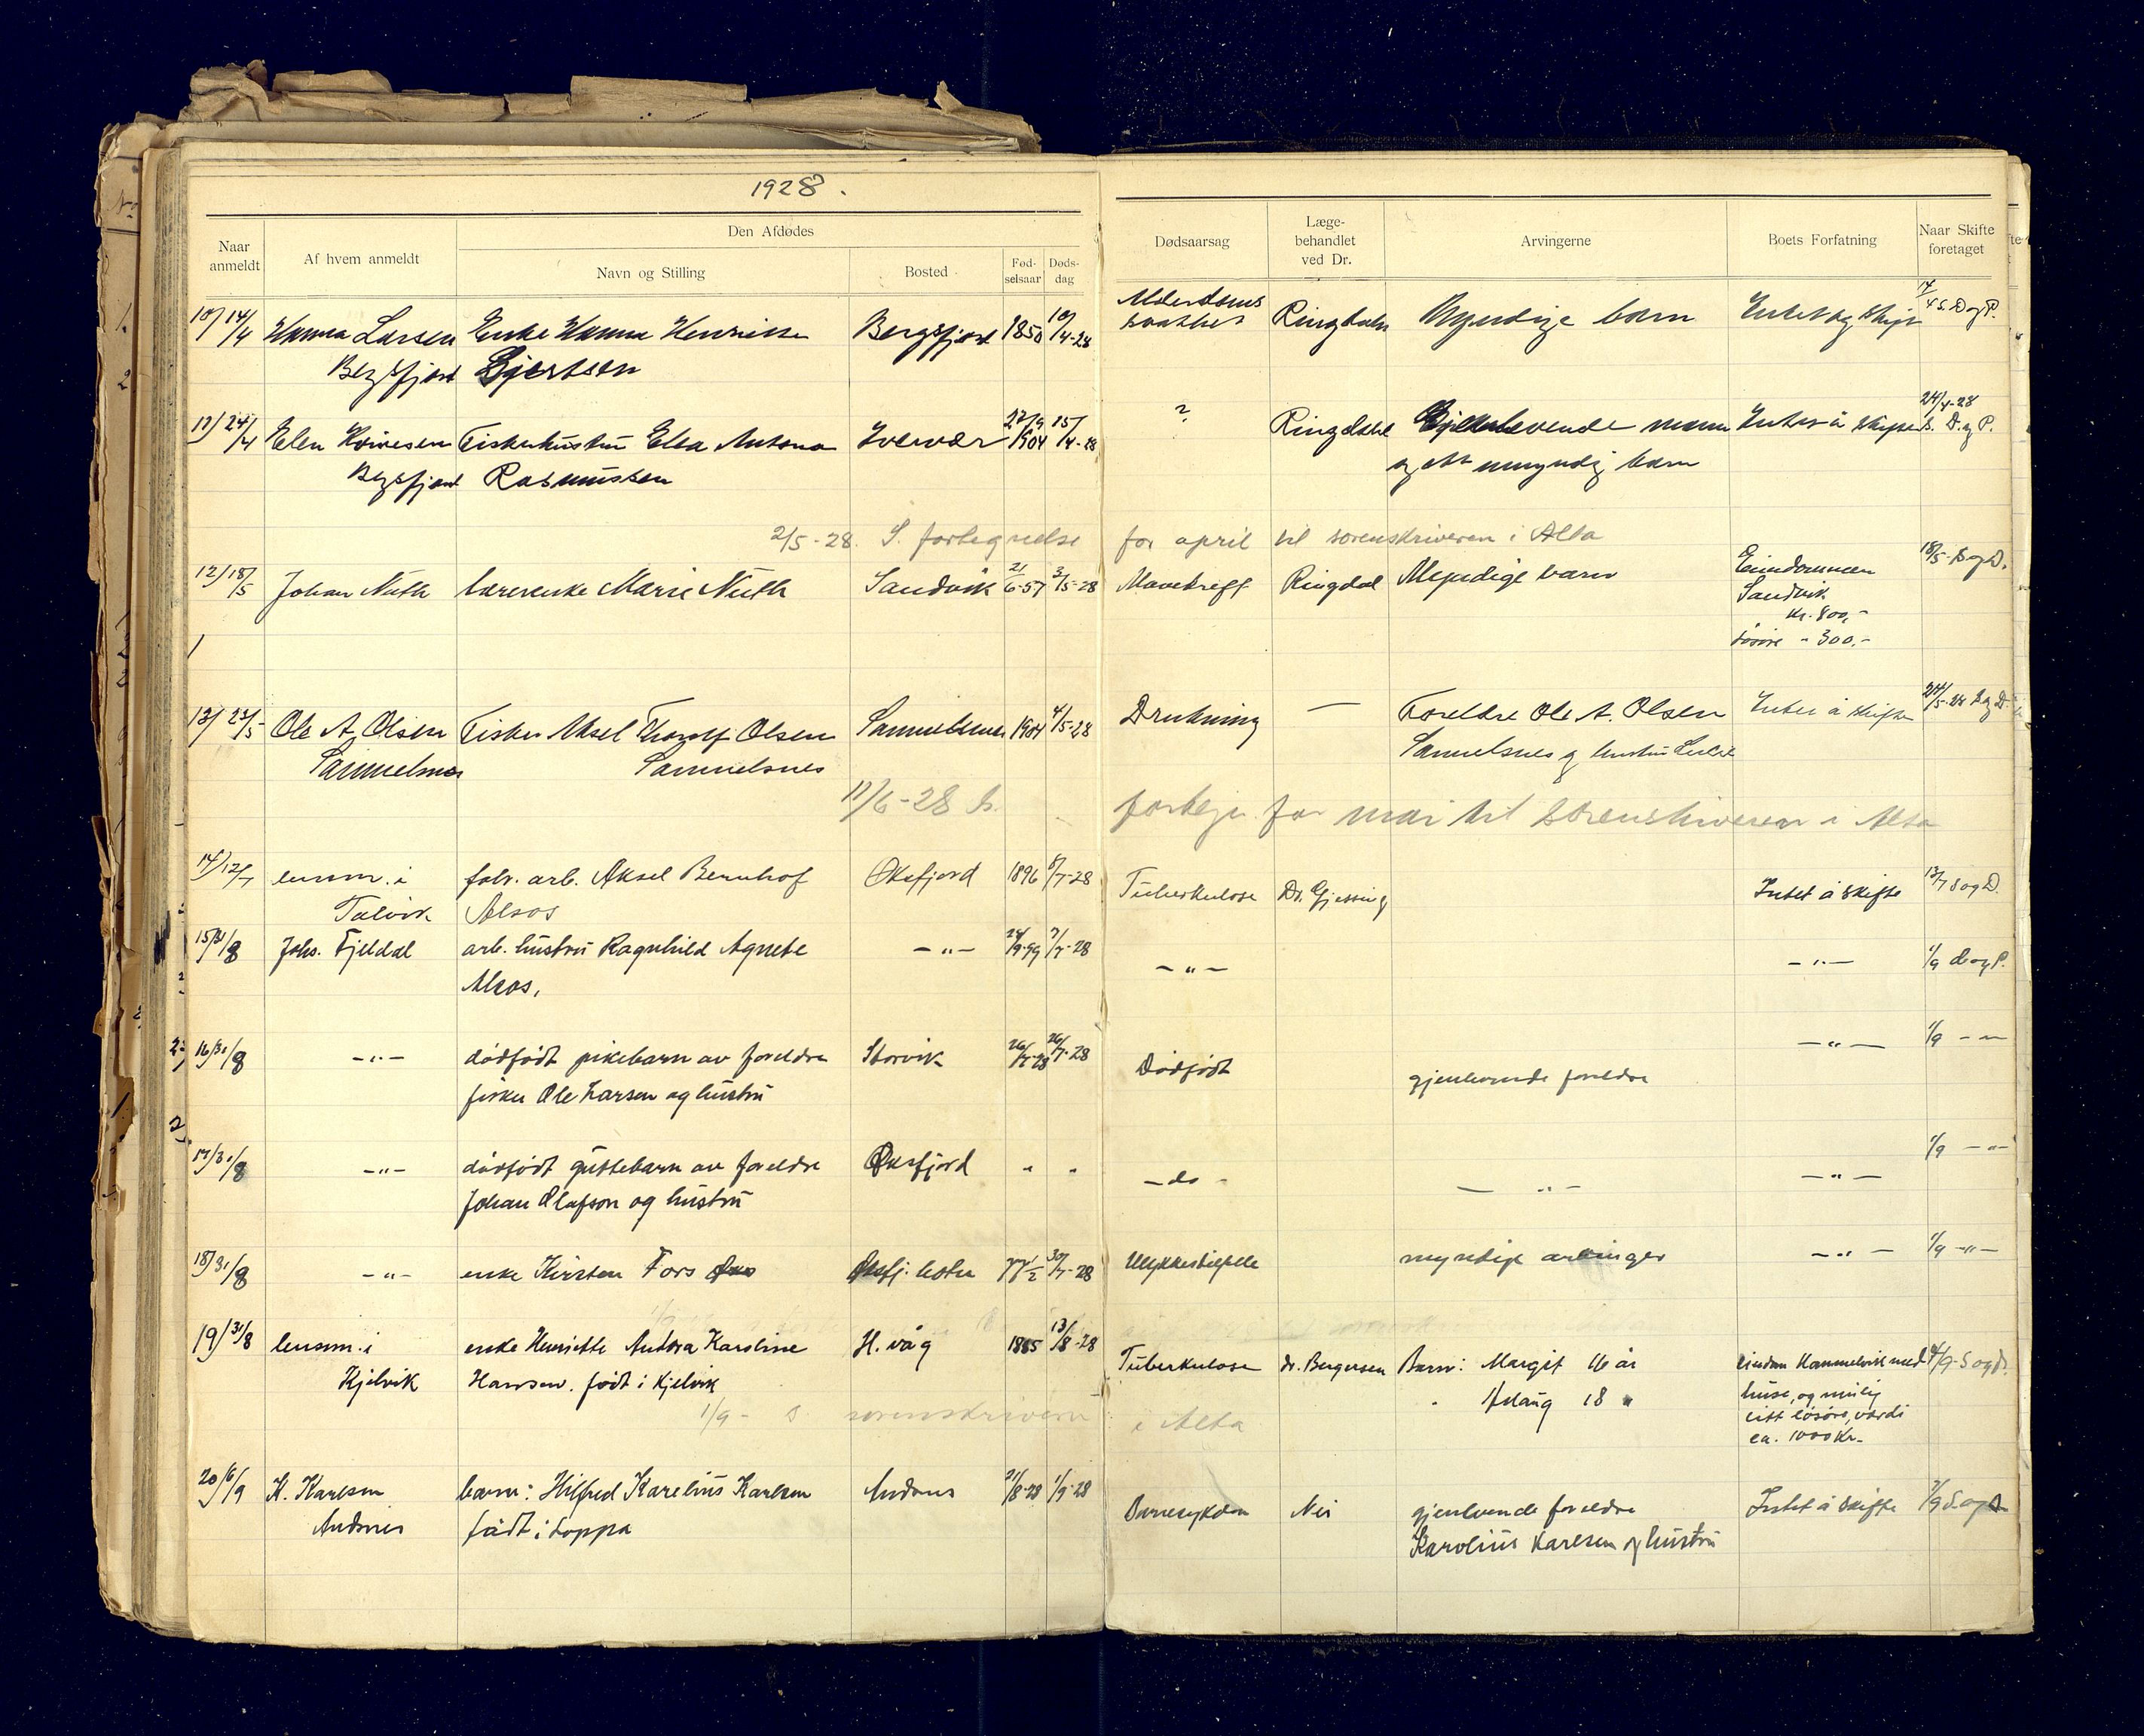 1928.
Naar anmeldt
Af hvem anmeldt
Den Afdødes
Navn og Stilling
Bosted
Fød-selsaar
Døds-dag
Dødsaarsag
Læge-behandlet ved Dr.
Arvingerne
Boets Forfatning
Naar Skifte foretaget
10/ 14/4 Hanna Larsen Enke Hanna Bergsfjord 1850 10/4-28 Alderdoms Ringdahl Myndige barn
Bergsfjord
11/ 24/4 Elen Fiskerhustru Elea Antona 27/9 1904 15/4-28 ? Ringdahl mann Intet å skifte 24/4-28 S. D. og P.
Bergsfjord Rasmussen og ett umyndig barn
2/5-28. S. fortegnelse for april til sorenskriveren i Alta
12/ 18/5 Johan Nuth Marie Nuth Sandvik 21/6-57 3/5-28 Ringdal Myndige barn Eiendommen 18/5- S og D.
Sandvik
kr. 800,-
løsøre - 300.-
13/ 23/5 Ole A. Olsen Fisker Aksel Olsen Samuelsnes 1904 4/5-28 Drukning — Foreldre Ole A. Olsen Intet å skifte 24/5-28 S og D.
Samuelsnes Samuelsnes Samuelsnes og hustru
11/6-28 S. fortegn. for mai til sorenskriveren i Alta
14/ 12/7 lensm. i Aksel Bernhof Øksfjord 1896 5/7-28 Tuberkulose Dr. Gjessing Intet å skifte 13/7 S og D.
Talvik Alsos
15/ 31/8 Johs. Fjeldal arb. hustru Ragnhild Agnete — " — 24/9-99 7/7-28 — " — — " — 1/9 S og P.
Alsos.
16/ 31/8 — " — dødfødt pikebarn av foreldre Storvik 26/7-28 26/7-28 Dødfødt gjenlevende foreldre — " — 1/9 — " —
fisker Ole Larsen og hustru
17/ 31/8 — " — dødfødt guttebarn av foreldre Øksfjord " " — do - — " — — " — 1/9 — " —
Johan Olafson og hustru
18/ 31/8 — " — enke Kirsten Fors 77 1/2 30/7-28 Ulykkestilfelle myndige arvinger — " — 1/9 — " —
19/ 31/8 lensm. i enke Henriette Antora Karoline H. våg 1885 13/8-28 Tuberkulose dr. Bergersen Barn: Margit 16 år eiendom Hammelvik med 4/9- S og D.
Kjelvik Hansen. født i Kjelvik 18 " huse, og
litt løsøre, verdi
ea. 1000 Kr.
1/9 - S sorenskriveren i Alta
20/ 6/9 K. Karlsen barn: Hilfred Karelius Karlsen Andsnes 21/8-28 1/9-28 Barnesykdom Nei gjenlevende foreldre Intet å skifte 7/9 S og D
Andsnes født i Loppa Karolius Karlsen og hustru